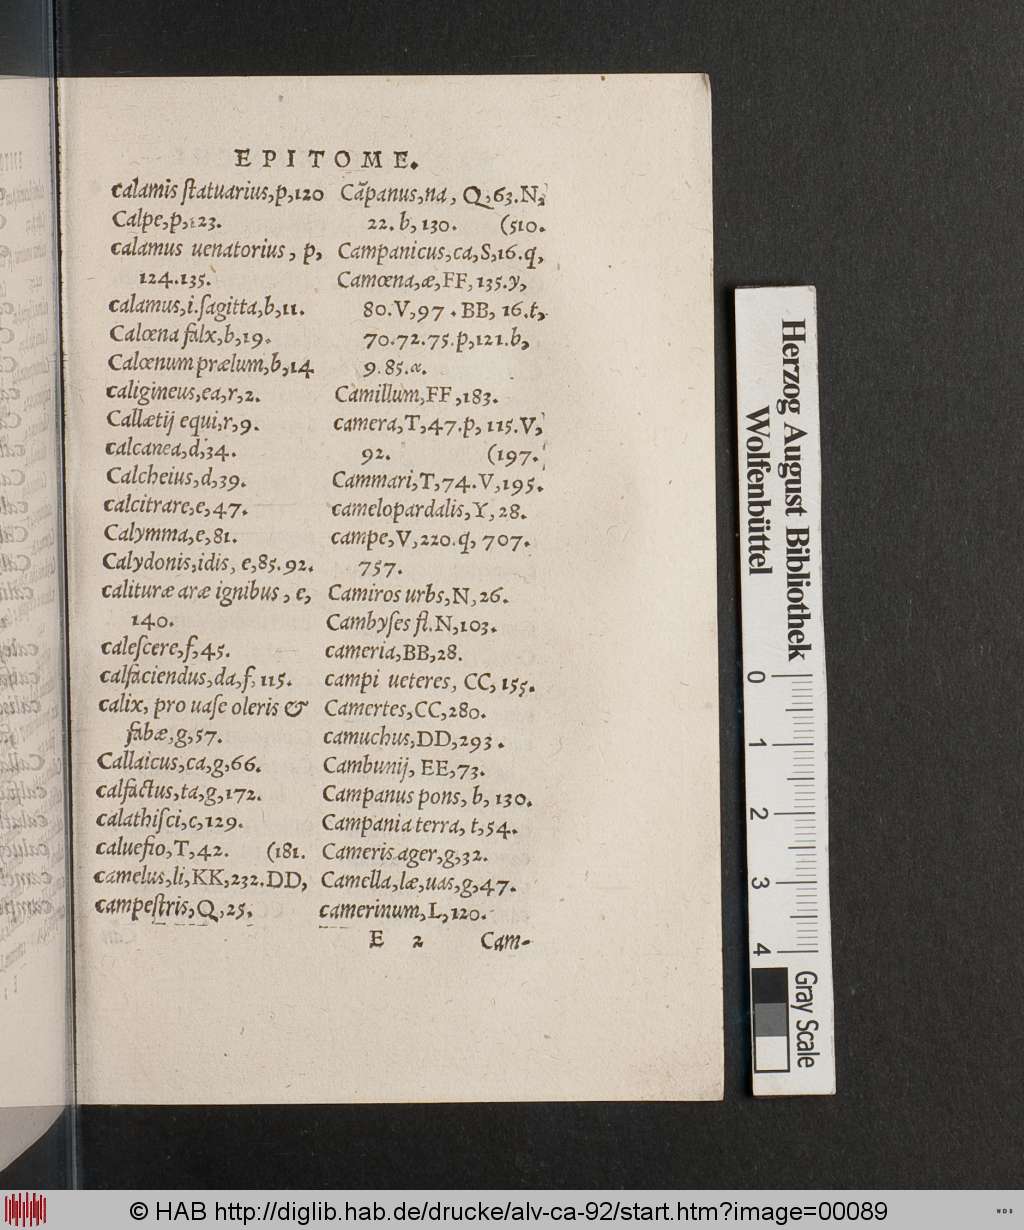 EPITOME.
calamis ſtatuarius,p,120
Calpe,p,123.
calamus uenatorius, p,
124.135.
calamus,i.ſagitta,b,11.
Calœna falx,b,19.
Calœnum prælum,b,14
caligineus,ea,r,2.
Callætij equi,r,9.
calcanea,d,34.
Calcheius,d,39.
calcitrare,e,47.
Calymma,e,81.
Calydonis,idis, e,85.92.
calituræ aræ ignibus, e,
140.
caleſcere,f,45.
calfaciendus,da,f,115.
calix, pro uaſe oleris &
fabæ,g,57.
Callaicus,ca,g,66.
calfactus,ta,g,172.
calathiſci,c,129.
caluefio,T,42. (181.
camelus,li,KK,232.DD,
campeſtris,Q,25.
Cāpanus,na, Q,63.N,
22.b,130. (510.
Campanicus,ca,S,16.q,
Camœna,æ,FF,135.y,
80.V,97.BB, 16.t,
70.72.75.p,121.b,
9.85.α.
Camillum,FF,183.
camera,T,47.p,115.V,
92. (197.
Cammari,T,74.V,195.
camelopardalis,Y,28.
campe,V,220.q,707.
757.
Camiros urbs,N,26.
Cambyſes fl.N,103.
cameria,BB,28.
campi ueteres, CC,155.
Camertes,CC,280.
camuchus,DD,293.
Cambunij, EE,73.
Campanus pons, b,130.
Campania terra, t,54.
Cameris ager,g,32.
Camella,læ,uas,g,47.
camerinum,L,120.
E 2 Cam-
Herzog August Bibliothek
Wolfenbüttel
0 1 2 3 4
Gray Scale
© HAB http://diglib.hab.de/drucke/alv-ca-92/start.htm?image=00089
WDB